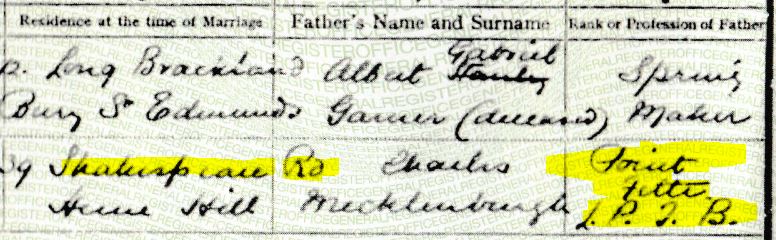 Residence at the time of Marriage Father's Name and Surname Rank or Profession of Father
Long Brackland Albert Gabriel Stanley Spring
Bury St Edmunds Garner (deceased) Maker
59 Shakespeare Rd Charles Point
Herne Hill Mecklenburgh Fitter
L. P. T. B.